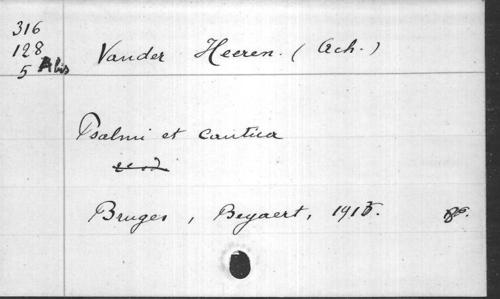 316
128
5 Abis
Vander Heeren. (Ach.)
Psalmi et cantica
Bruges, Beyaert, 1915. 8º.